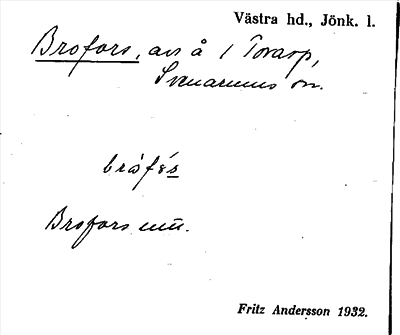 Västra hd., Jönk. l.
Brofors, avs å i Torarp,
Svenarums sn.
bråfórs
Brofors
Fritz Andersson 1932.